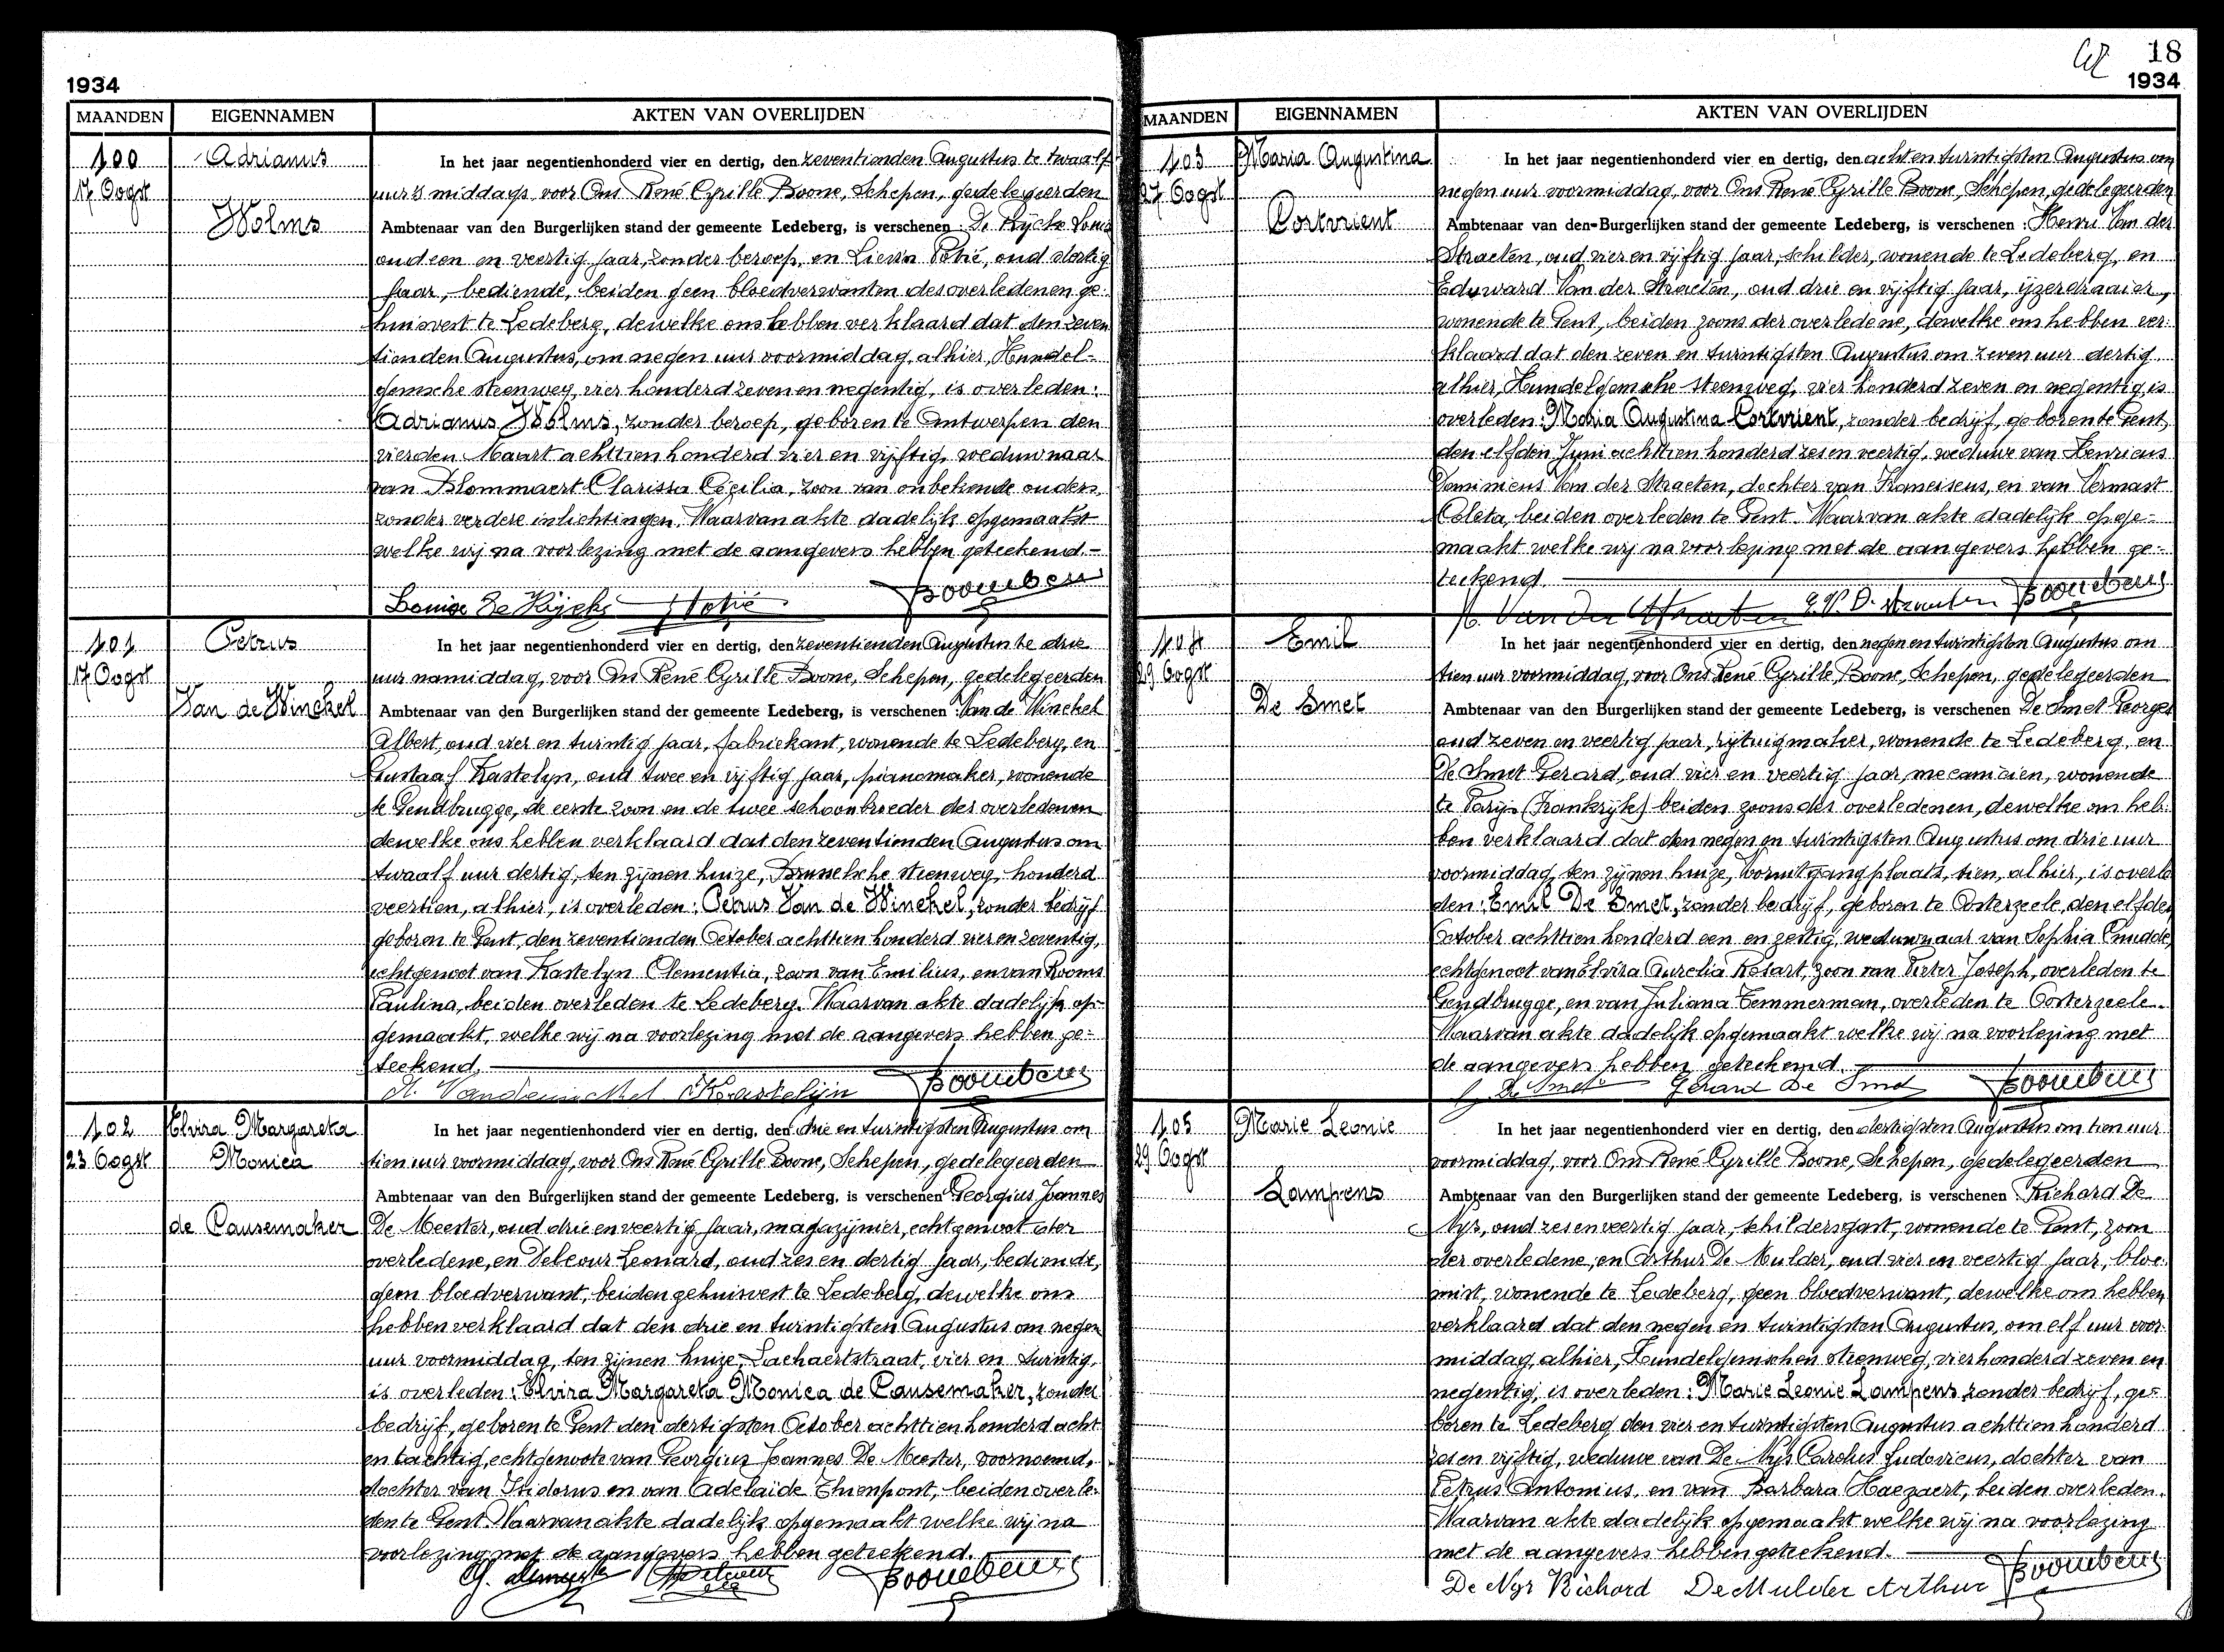 1934
MAANDEN EIGENNAMEN AKTEN VAN OVERLIJDEN
100
17 Oogst
Adrianus
Wolms
In het jaar negentienhonderd vier en dertig, den zeventienden Augustus te twaalf
uur 's middags, voor Ons René Cyrille Boone, Schepen, gedelegeerden
Ambtenaar van den Burgerlijken stand der gemeente Ledeberg, is verschenen : De Rycke Louis
oud een en veertig jaar, zonder beroep, en Lievin Potié, oud dertig
jaar, bediende, beiden geen bloedverwanten des overledenen ge-
huisvest te Ledeberg, dewelke ons hebben verklaard dat den zeven
tienden Augustus, om negen uur voormiddag, alhier, Hundel-
gemsche steenweg, vier honderd zeven en negentig, is overleden:
Adrianus Wolms, zonder beroep, geboren te Antwerpen den
vierden Maart achttien honderd vier en vijftig, weduwnaar
van Blommaert Clarissa Cecilia, zoon van onbekende ouders,
zonder verdere inlichtingen. Waarvan akte dadelijk opgemaakt
welke wij na voorlezing met de aangevers hebben geteekend.-
101
17 Oogst
Petrus
Van de Winckel
In het jaar negentienhonderd vier en dertig, den zeventienden Augustus te drie
uur namiddag, voor Ons René Cyrille Boone, Schepen, gedelegeerden
Ambtenaar van den Burgerlijken stand der gemeente Ledeberg, is verschenen : Van de Winckel
Albert, oud vier en twintig jaar, fabriekant, wonende te Ledeberg, en
Gustaaf Kastelyn, oud twee en vijftig jaar, pianomaker, wonende
te Gendbrugge, de eerste zoon en de twee schoonbroeder des overledenen
dewelke ons hebben verklaard dat den zeventienden Augustus om
twaalf uur dertig, ten zijnen huize, Brusselsche steenweg, honderd
veertien, alhier, is overleden: Petrus Van de Winckel, zonder bedrijf
geboren te Gent, den zeventienden October achttien honderd vier en zeventig,
echtgenoot van Kastelyn Clementia, zoon van Emilius, en van Rooms
Paulina, beiden overleden te Ledeberg. Waarvan akte dadelijk op-
gemaakt, welke wij na voorlezing met de aangevers hebben ge-
teekend.
102
23 Oogst
Elvira Margareta
Monica
de Pausemaker
In het jaar negentienhonderd vier en dertig, den drie en twintigsten Augustus om
tien uur voormiddag, voor Ons René Cyrille Boone, Schepen, gedelegeerden
Ambtenaar van den Burgerlijken stand der gemeente Ledeberg, is verschenen Georgius Joannes
De Meester, oud drie en veertig jaar, magazijnier, echtgenoot der
overledene, en Debeour Leonard, oud zes en dertig jaar, bediende,
geen bloedverwant, beiden gehuisvest te Ledeberg, dewelke ons
hebben verklaard dat den drie en twintigsten Augustus om negen
uur voormiddag, ten zijnen huize, Lachaertstraat, vier en twintig,
is overleden: Elvira Margareta Monica de Pausemaker, zonder
bedrijf, geboren te Gent den dertigsten October achttien honderd acht
en tachtig, echtgenoote van Georgius Joannes De Meester, voornoemd,
dochter van Isidorus en van Adelaïde Thienpont, beiden overle-
den te Gent. Waarvan akte dadelijk opgemaakt welke wij na
voorlezing met de aangevers hebben geteekend.
18
1934
MAANDEN EIGENNAMEN AKTEN VAN OVERLIJDEN
103
27 Oogst
Maria Augustina
Cortvrient
In het jaar negentienhonderd vier en dertig, den acht en twintigsten Augustus om
negen uur voormiddag, voor Ons René Cyrille Boone, Schepen, gedelegeerden
Ambtenaar van den Burgerlijken stand der gemeente Ledeberg, is verschenen : Henri Van der
Straeten, oud vier en vijftig jaar, schilder, wonende te Ledeberg, en
Eduward Van der Straeten, oud drie en vijftig jaar, ijzerdraaier,
wonende te Gent, beiden zoons der overledene, dewelke ons hebben ver-
klaard dat den zeven en twintigsten Augustus om zeven uur dertig
alhier, Hundelgemsche steenweg, vier honderd zeven en negentig is
overleden: Maria Augustina Cortvrient, zonder bedrijf, geboren te Gent,
den elfden Juni achttien honderd zes en veertig, weduwe van Henricus
Dominicus Van der Straeten, dochter van Franciscus, en van Vermast
Coleta, beiden overleden te Gent. Waarvan akte dadelijk opge-
maakt welke wij na voorlezing met de aangevers hebben ge-
teekend.
104
29 Oogst
Emil
De Smet
In het jaar negentienhonderd vier en dertig, den negen en twintigsten Augustus om
tien uur voormiddag, voor Ons René Cyrille Boone, Schepen, gedelegeerden
Ambtenaar van den Burgerlijken stand der gemeente Ledeberg, is verschenen De Smet Georges
oud zeven en veertig jaar, rijtuigmaker, wonende te Ledeberg, en
De Smet Gerard, oud vier en veertig jaar, mecanicien, wonende
te Parijs (Frankrijk) beiden zoons des overledenen, dewelke ons heb-
ben verklaard dat den negen en twintigsten Augustus om drie uur
voormiddag, ten zijnen huize, Vooruitgangplaats, tien, alhier, is overle
den: Emil De Smet, zonder bedrijf, geboren te Oosterzeele, den elfden
October achttien honderd een en zestig, weduwnaar van Sophia Cnudde,
echtgenoot van Elvira Aurelia Rosart, zoon van Pieter Joseph, overleden te
Gendbrugge, en van Juliana Temmerman, overleden te Oosterzeele.
Waarvan akte dadelijk opgemaakt welke wij na voorlezing met
de aangevers hebben geteekend.
De Smet Gerard De Smet
105
29 Oogst
Marie Leonie
Lampens
In het jaar negentienhonderd vier en dertig, den dertigsten Augustus om tien uur
voormiddag, voor Ons René Cyrille Boone, Schepen, gedelegeerden
Ambtenaar van den Burgerlijken stand der gemeente Ledeberg, is verschenen Richard De
Nys, oud zes en veertig jaar, schildersgast, wonende te Gent, zoon
der overledene, en Arthur De Mulder, oud vier en veertig jaar, bloe-
mist, wonende te Ledeberg, geen bloedverwant, dewelke ons hebben
verklaard dat den negen en twintigsten Augustus, om elf uur voor-
middag, alhier, Hundelgemschen steenweg, vier honderd zeven en
negentig, is overleden: Marie Leonie Lampens zonder bedrijf, ge-
boren te Ledeberg den vier en twintigsten Augustus achttien honderd
zes en vijftig, weduwe van De Nys Carolus Ludovicus, dochter van
Petrus Antonius, en van Barbara Haezaert, beiden overleden.
Waarvan akte dadelijk opgemaakt welke wij na voorlezing
met de aangevers hebben geteekend.
De Nys Richard De Mulder Arthur